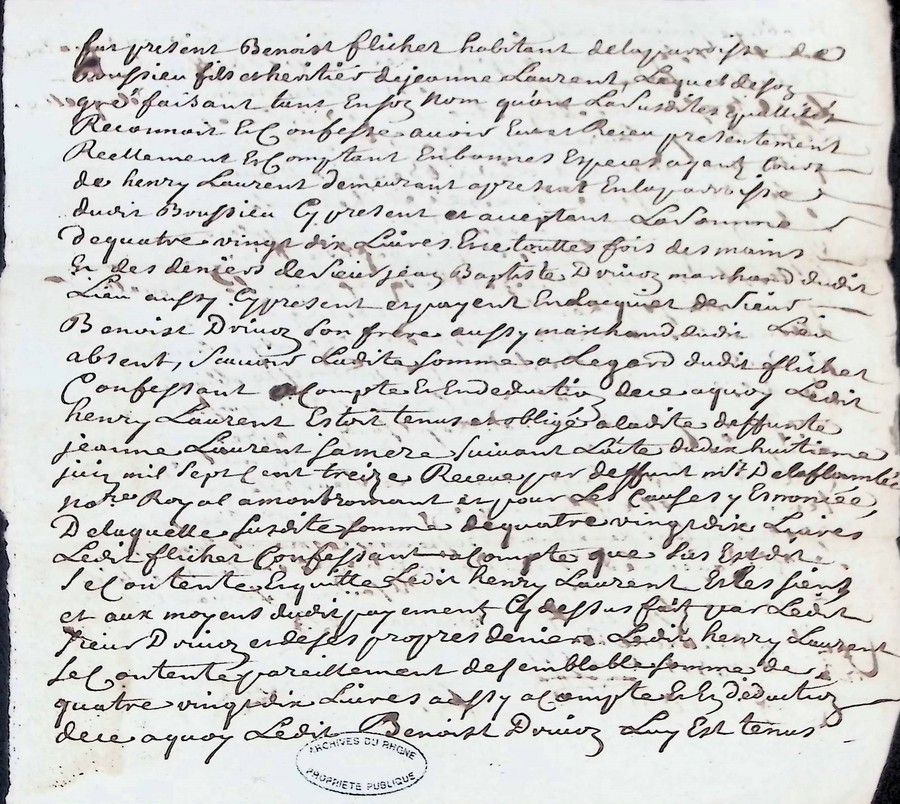 fut present Benoist flichet habitant delaparroisse de
Boussieu fils et heritier dejeanne Laurent, Lequel desoy
gré faisant tant Ensoy Nom qu'ont Lasusdittes quallités
Reconnoit Et Confesse avoir Eu et Receu presentement
Reellement Et Comptant Enbonnes Especes ayant Cours
de henry Laurent demeurant apresent Enlaparroisse
dudit Boussieu Cy present et acceptant Lasomme
dequatre vingt dix Livres Et ce touttes fois des mains
Et des deniers de Sieur jean Baptiste Drivoz marchand dudit
Lieu aussy Cypresent et payent Enlacquit de Sieur
Benoist Drivoz son frere aussy marchand dudit Lieu
absent, scavoir Ladite somme a Legard dudit flichet
Confessant a Compte Et Endeduction dece aquoy Ledit
henry Laurent Estoit tenus et obligé aladite deffunte
jeanne Laurent samere suivant L'acte dudix huitieme
juin mil sept Cent treize Receue par deffunt mr. Delaflambé
nore. Royal amontromant et pour Les Causes y Enoncée,
Delaquelle susdite somme dequatre vingt dix Livres
Ledit flichet Confessant acompte que sus Est dit
se Contente Enquitte Ledit henry Laurent Et les siens
et aux moyens dudit payement Cy dessus fait par Ledit
sieur Drivoz et deses propres deniers Ledit henry Laurent
se Contente pareillement desemblable somme de
quatre vingt dix Livres aussy acompte Et En deduction
dece aquoy Ledit Benoist Drivoz Luy Est tenus
ARCHIVES DU RHONE
PROPRIETE PUBLIQUE